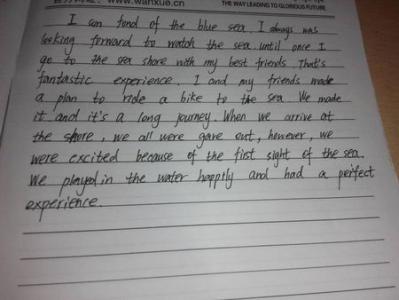 www.wanxue.cn THE WAY LEADING TO GLORIOUS FUTURE
I am fond of the blue sea. I always was
looking forward to watch the sea until once I
go to the sea shore with my best friends. That's
fantastic experience. I and my friends made
a plan to ride a bike to the sea. We made
it and it's a long journey. When we arrive at
the shore, we all were gave out, however, we
were excited because of the first sight of the sea.
We played in the water happily and had a perfect
experience.